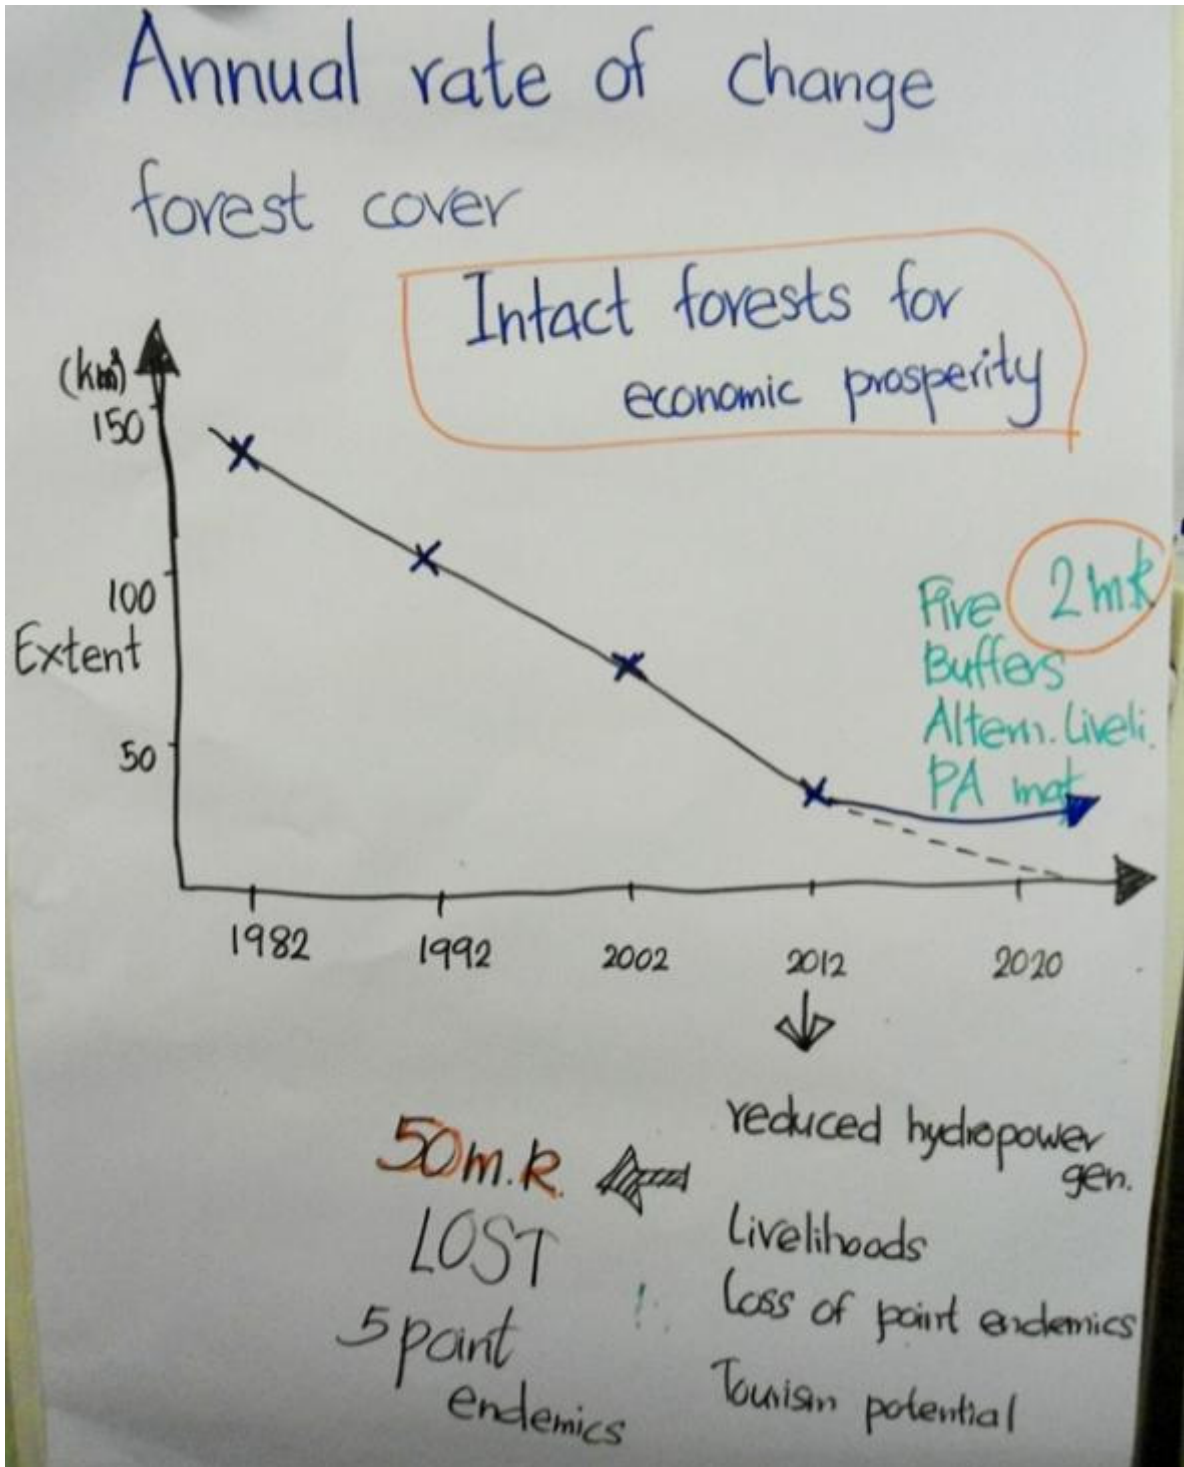 Annual rate of change
forest cover
Intact forests for
economic prosperity
(km²)
150
100
Extent
50
Fire
2 m.k
Buffers
Altern. Liveli.
PA mgt
1982
1992
2002
2012
2020
reduced hydropower
gen.
Livelihoods
Loss of point endemics
Tourism potential
50 m.k.
LOST
5 point
endemics
!